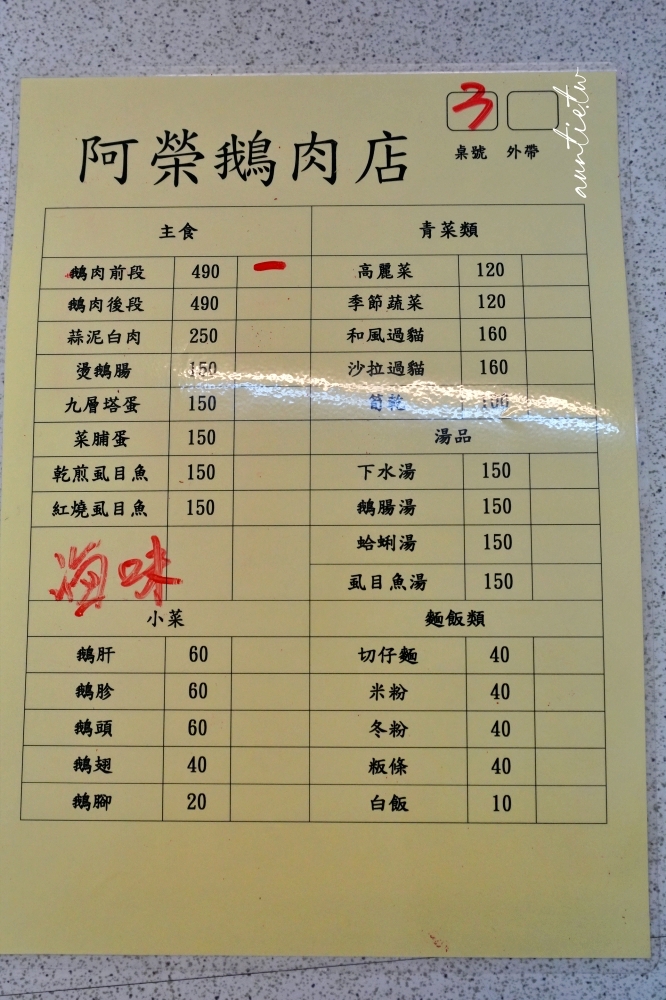 3
auntie.tw
桌號 外帶
阿榮鵝肉店
主食 青菜類
鵝肉前段 490 一 高麗菜 120
鵝肉後段 490 季節蔬菜 120
蒜泥白肉 250 和風過貓 160
燙鵝腸 150 沙拉過貓 160
九層塔蛋 150 筍乾
菜脯蛋 150 湯品
乾煎虱目魚 150 下水湯 150
紅燒虱目魚 150 鵝腸湯 150
蛤蜊湯 150
味 虱目魚湯 150
小菜 麵飯類
鵝肝 60 切仔麵 40
鵝胗 60 米粉 40
鵝頭 60 冬粉 40
鵝翅 40 粄條 40
鵝腳 20 白飯 10